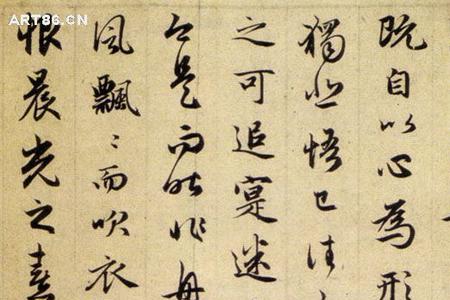 ART86.CN
既自以心為形
獨悲悟已往
之可追寔迷
今是而昨非舟
風飄〻而吹衣
恨晨光之熹